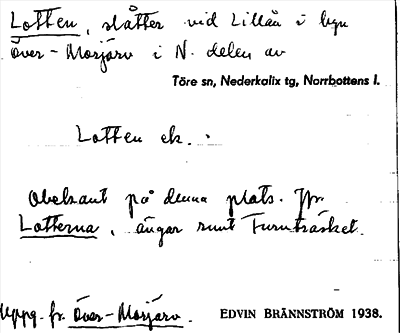 Lotten, slåtter vid Lillån i byn
Över-Morjärv i N. delen av
Töre sn, Nederkalix tg, Norrbottens l.
Lotten ek.
Obekant på denna plats. Jfr
Lotterna, ängar runt Furuträsket.
Uppg. fr. Över-Morjärv.
EDVIN BRÄNNSTRÖM 1938.